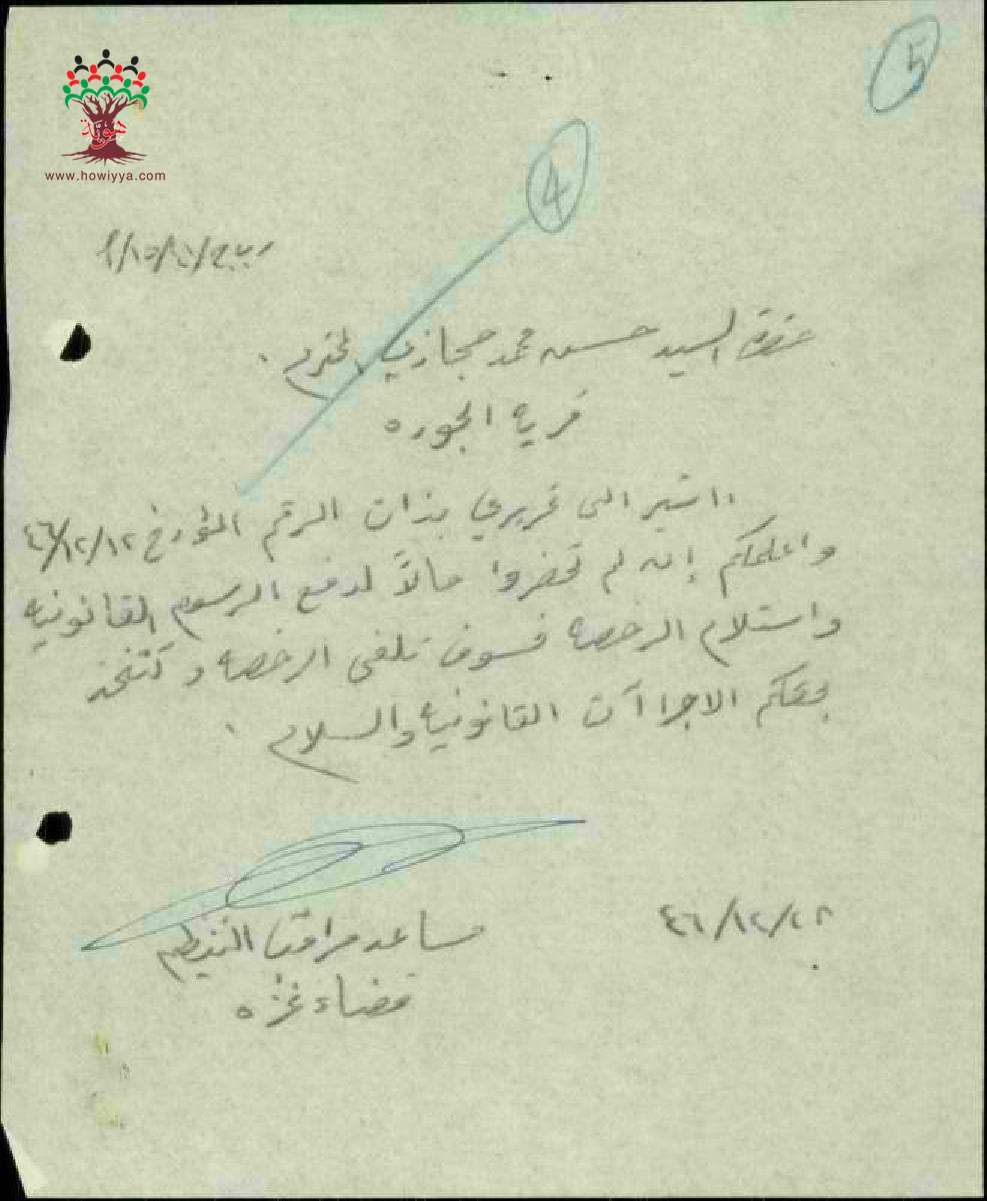 5
4
هوية
www.howiyya.com
حضرة السيد حسن محمد حجازي المحترم .
قرية الجوره
اشير الى تحريري بذات الرقم المؤرخ ٤٦/١٢/١٢
واعلمكم إن لم تحضروا حالاً لدفع الرسوم القانونيه
واستلام الرخصه فسوف تلغى الرخصه وتتخذ
بحقكم الاجراآت القانونيه والسلام .
٤٦/١٢/٢٨
مساعد مراقب التنظيم
قضاء غزه